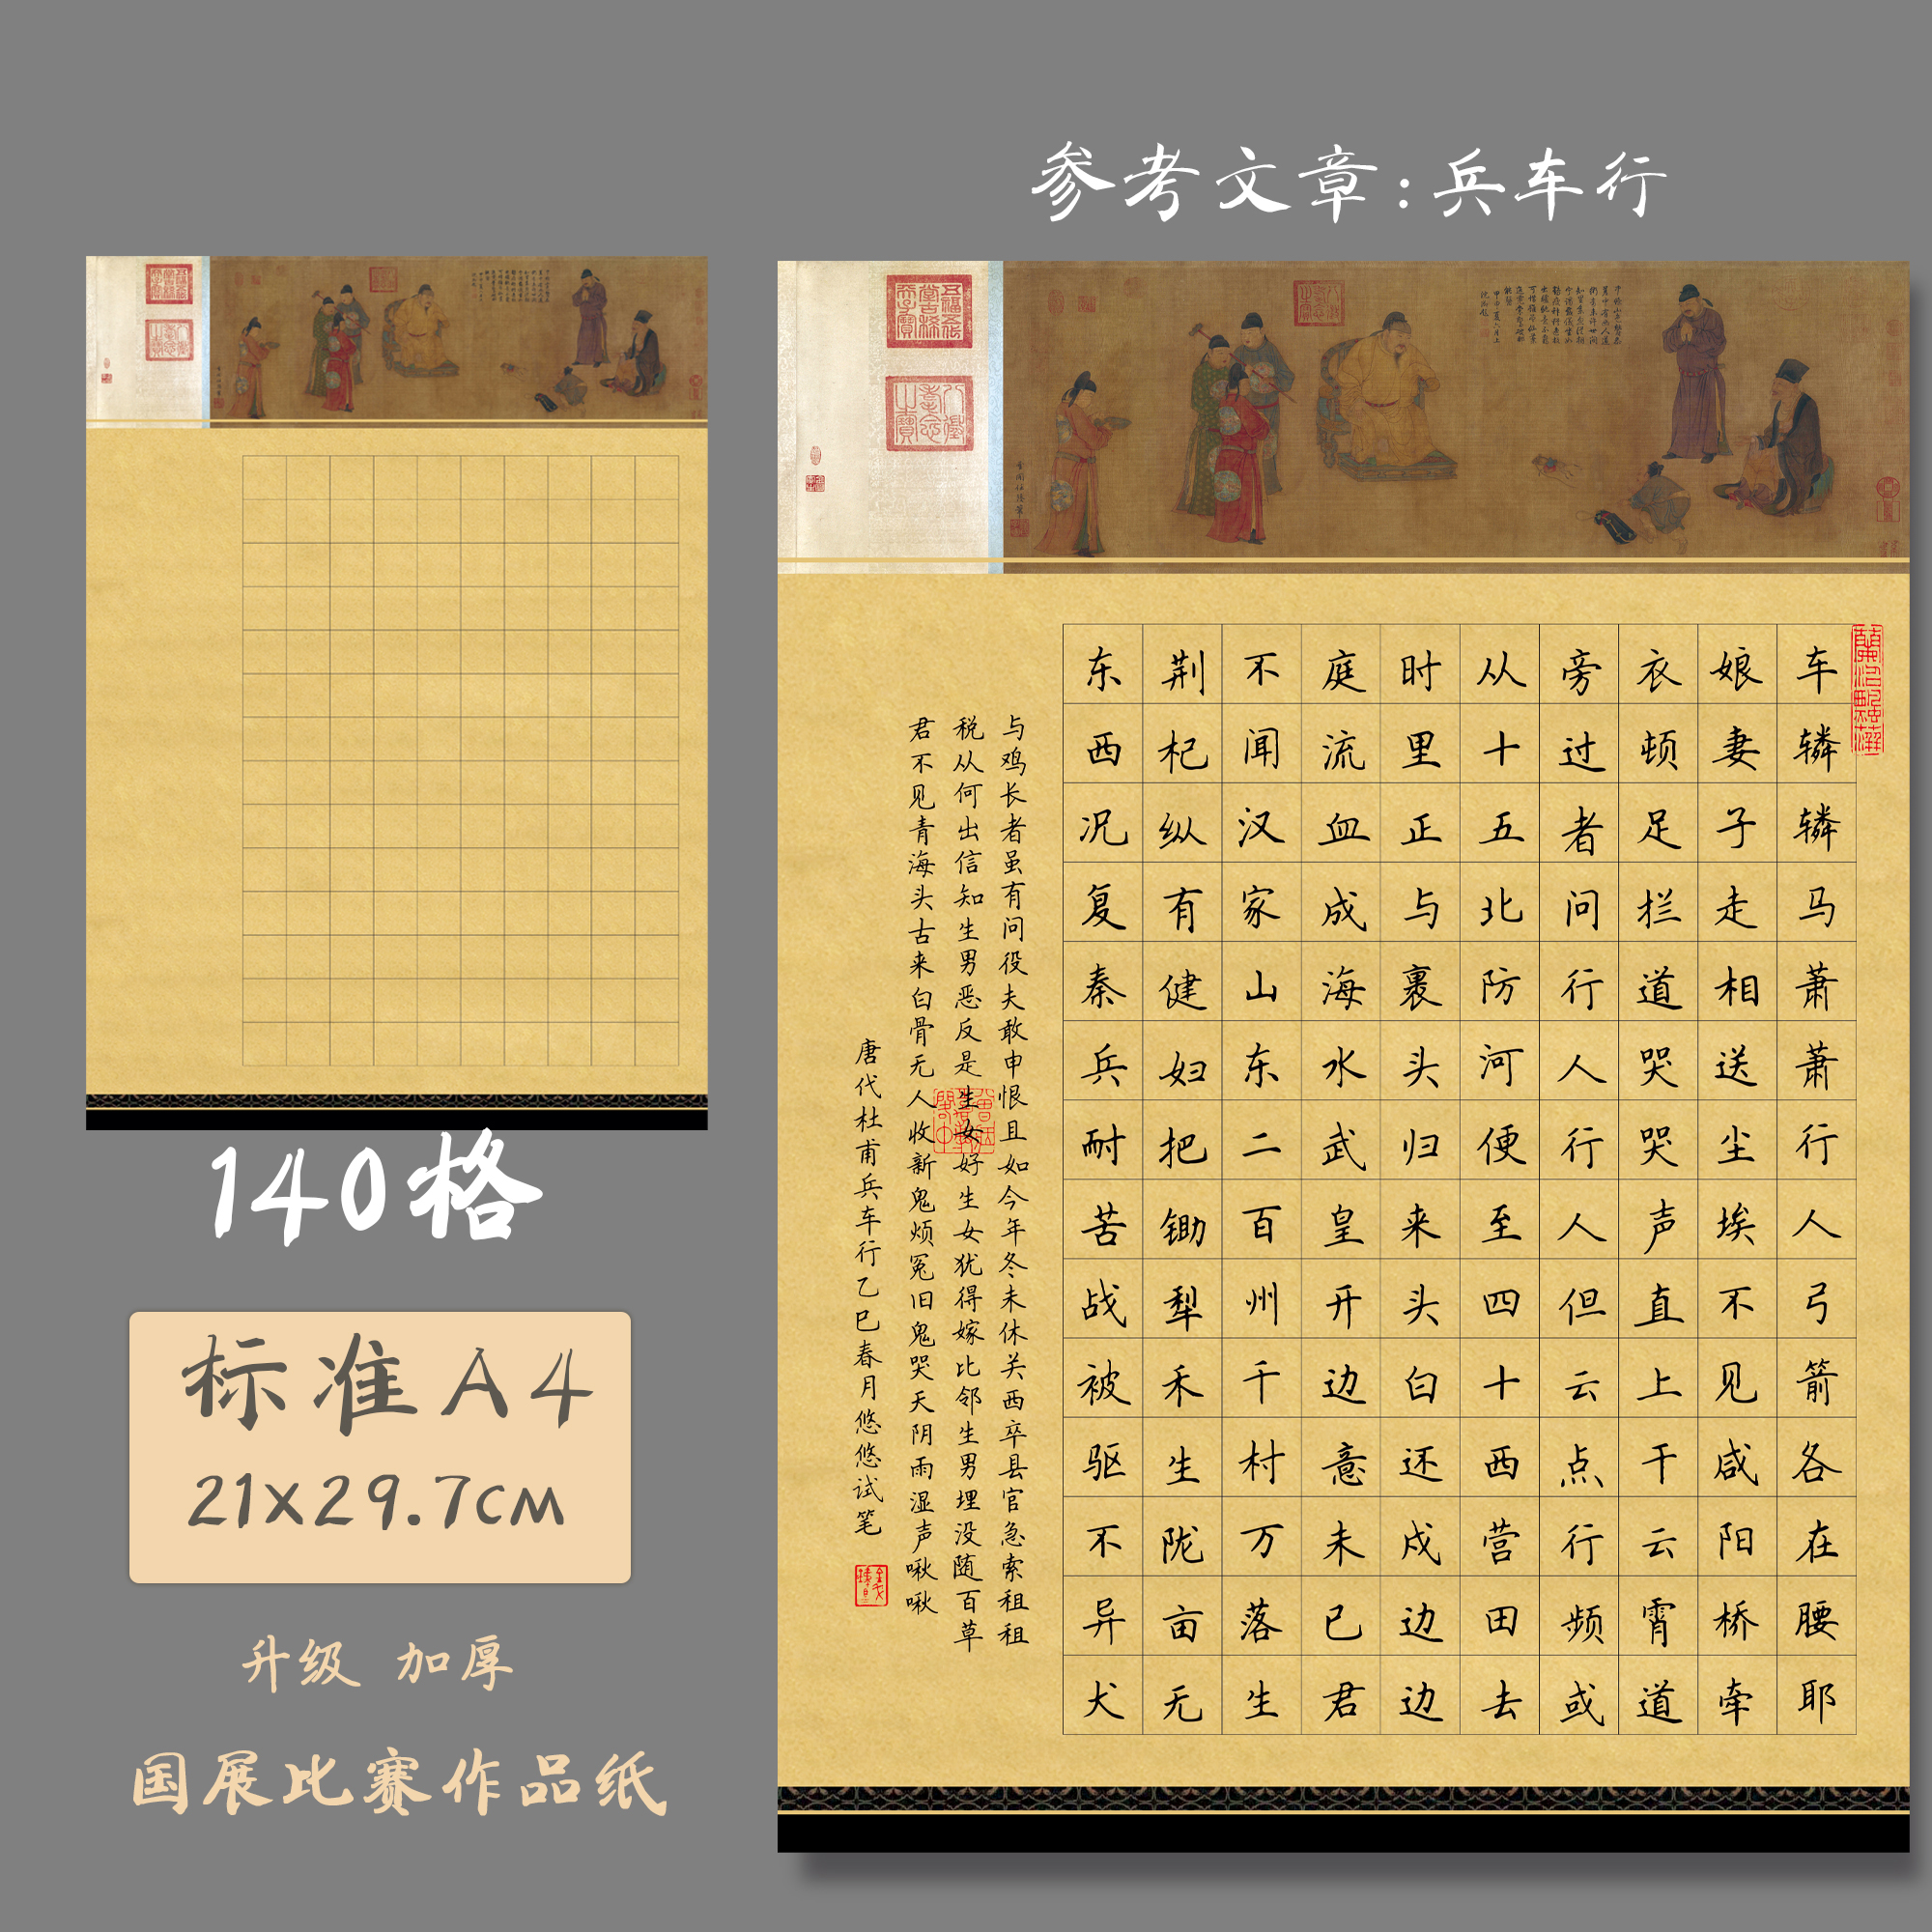 参考文章:兵车行
车辚辚马萧萧行人弓箭各在腰耶
娘妻子走相送尘埃不见咸阳桥牵
衣顿足拦道哭哭声直上干云霄道
旁过者问行人行人但云点行频或
从十五北防河便至四十西营田去
时里正与裹头归来头白还戍边边
庭流血成海水武皇开边意未已君
不闻汉家山东二百州千村万落生
荆杞纵有健妇把锄犁禾生陇亩无
东西况复秦兵耐苦战被驱不异犬
与鸡长者虽有问役夫敢申恨且如今年冬未休关西卒县官急索租租
税从何出信知生男恶反是生女好生女犹得嫁比邻生男埋没随百草
君不见青海头古来白骨无人收新鬼烦冤旧鬼哭天阴雨湿声啾啾
唐代杜甫兵车行乙巳春月悠悠试笔
140格
标准A4
21x29.7cm
升级 加厚
国展比赛作品纸